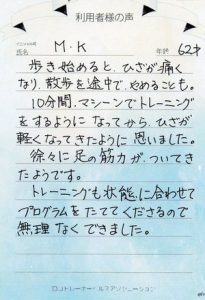 利用者様の声
氏名 M.K 年齢 62才
歩き始めると、ひざが痛く
なり、散歩を途中でやめることも。
10分間、マシーンでトレーニング
をするようになってから、ひざが
軽くなってきたように思いました。
徐々に足の筋力がついてき
たようです。
トレーニングも状態に合わせて
プログラムをたててくださるので
無理なくできました。